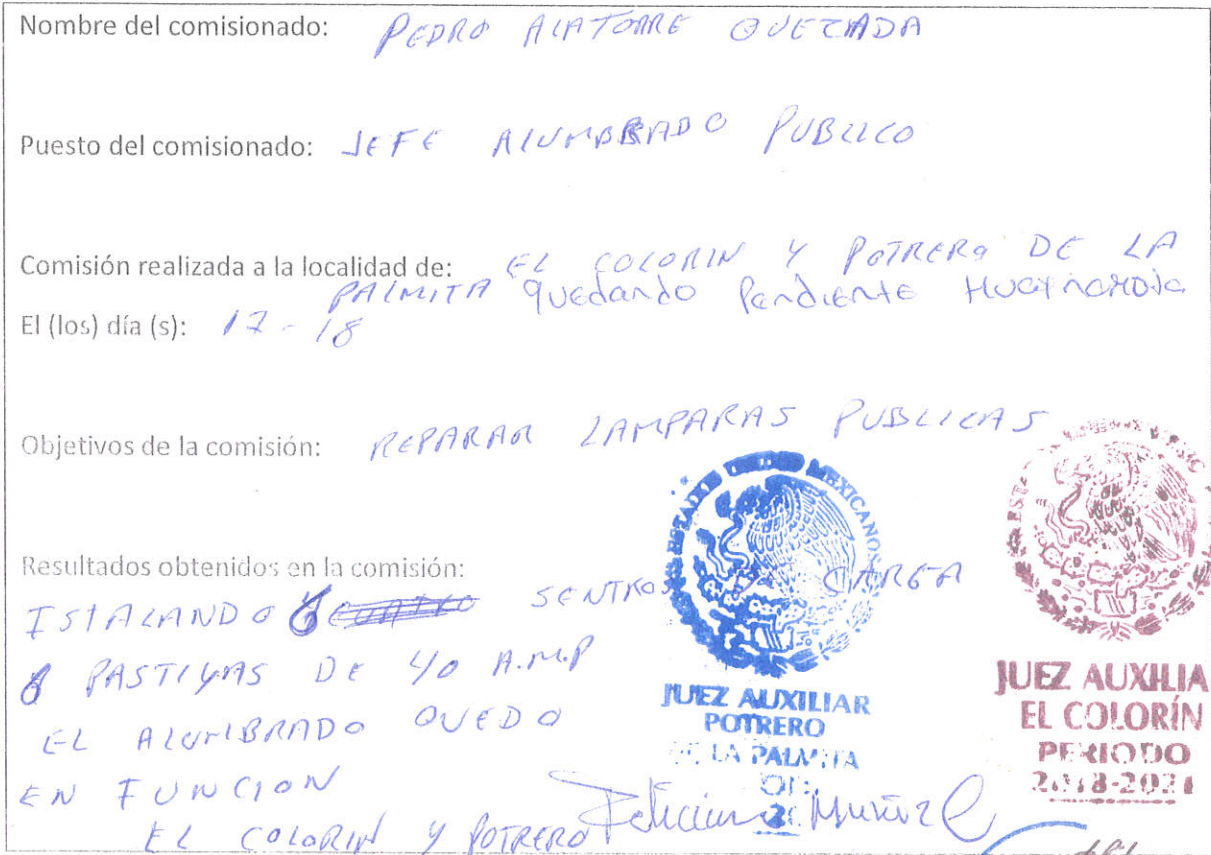 Nombre del comisionado: PEDRO ALATORRE QUEZADA
Puesto del comisionado: JEFE ALUMBRADO PUBLICO
Comisión realizada a la localidad de: EL COLORIN Y POTRERO DE LA
PALMITA quedando Pendiente
El (los) día (s): 17 - 18
Objetivos de la comisión: REPARAR LAMPARAS PUBLICAS
Resultados obtenidos en la comisión:
ISTALANDO 6 SENTROS CARGA
8 PASTIYAS DE 40 A.M.P
EL ALUMBRADO QUEDO
EN FUNCION
EL COLORIN Y POTRERO
ESTADOS UNIDOS MEXICANOS
JUEZ AUXILIAR
POTRERO
DE LA PALMITA
Feliciano Muñiz
JUEZ AUXILIA
EL COLORÍN
PERIODO
2018-2021